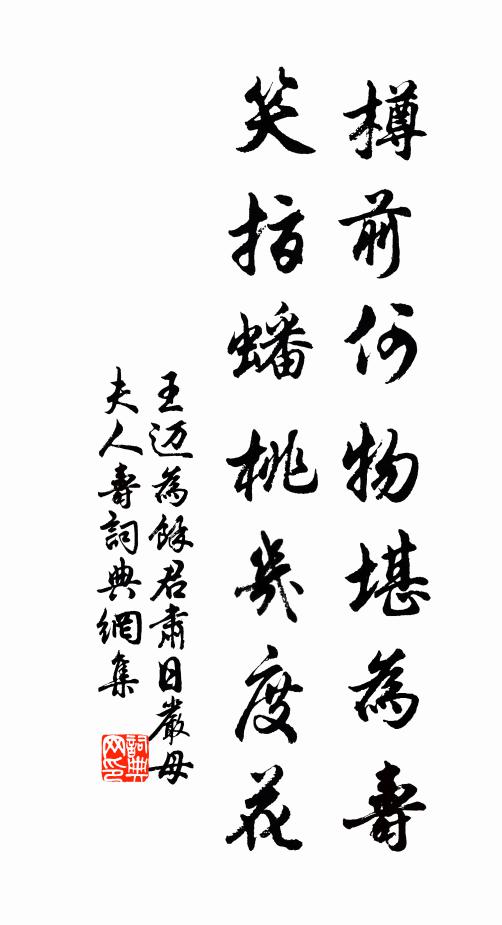 樽前何物堪為壽
笑指蟠桃幾度花
王迈為餘君肅日嚴母
夫人壽詞典網集
詞典
网印